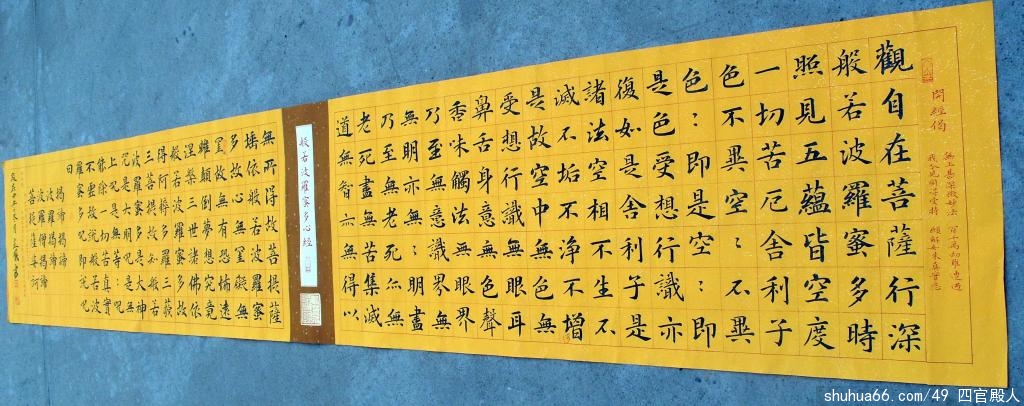 開經偈
無上甚深微妙法 百千萬劫難遭遇
我今見聞得受持 願解如來真實意
觀自在菩薩行深
般若波羅蜜多時
照見五蘊皆空度
一切苦厄舍利子
色不異空：不異
色：即是空：即
是色受想行識亦
復如是舍利子是
諸法空相不生不
滅不垢不淨不增
是故空中無色無
受想行識無眼耳
鼻舌身意無色聲
香味觸法無眼界
乃至無意識界無
無明亦無：明盡
乃至無老死亦無
老死盡無苦集滅
道無智亦無得以
般若波羅蜜多心經
無所得故菩提薩
埵依般若波羅蜜
多故心無罣礙無
罣故無有恐怖遠
離顛倒夢想究竟
涅槃三世諸佛依
般若波羅蜜多故
得阿耨多羅三藐
三菩提故知般若
波羅蜜多是大神
咒是大明咒是無
上咒是無等：咒
能除一切苦真實
不虛故說般若波
羅蜜多咒即說咒
曰
揭諦揭諦
波羅揭諦
波羅僧揭諦
菩提薩婆訶
shuhua66.com/49 四官殿人